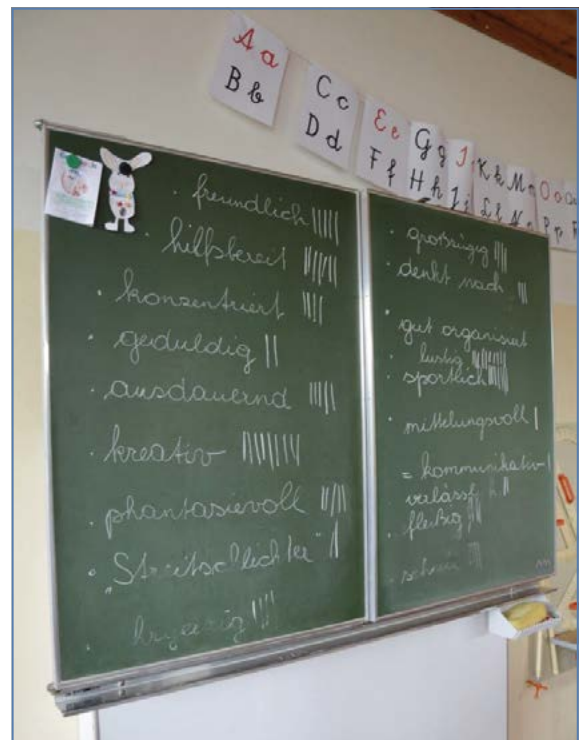 A a
B b
C c
D d
E e
F f
G g
H h
I
J j
K k
L l
M m
N n
O o
P p
· freundlich |||||
· hilfsbereit ||||||
· konzentriert ||||
· geduldig ||
· ausdauernd |||||
· kreativ ||||||||
· phantasievoll |||||
· „Streitschlichter“
· großzügig ||||
· denkt nach |||
· gut organisiert
· lustig
· sportlich
· mitteilungsvoll |
= kommunikativ |
· verlässl
· fleißig